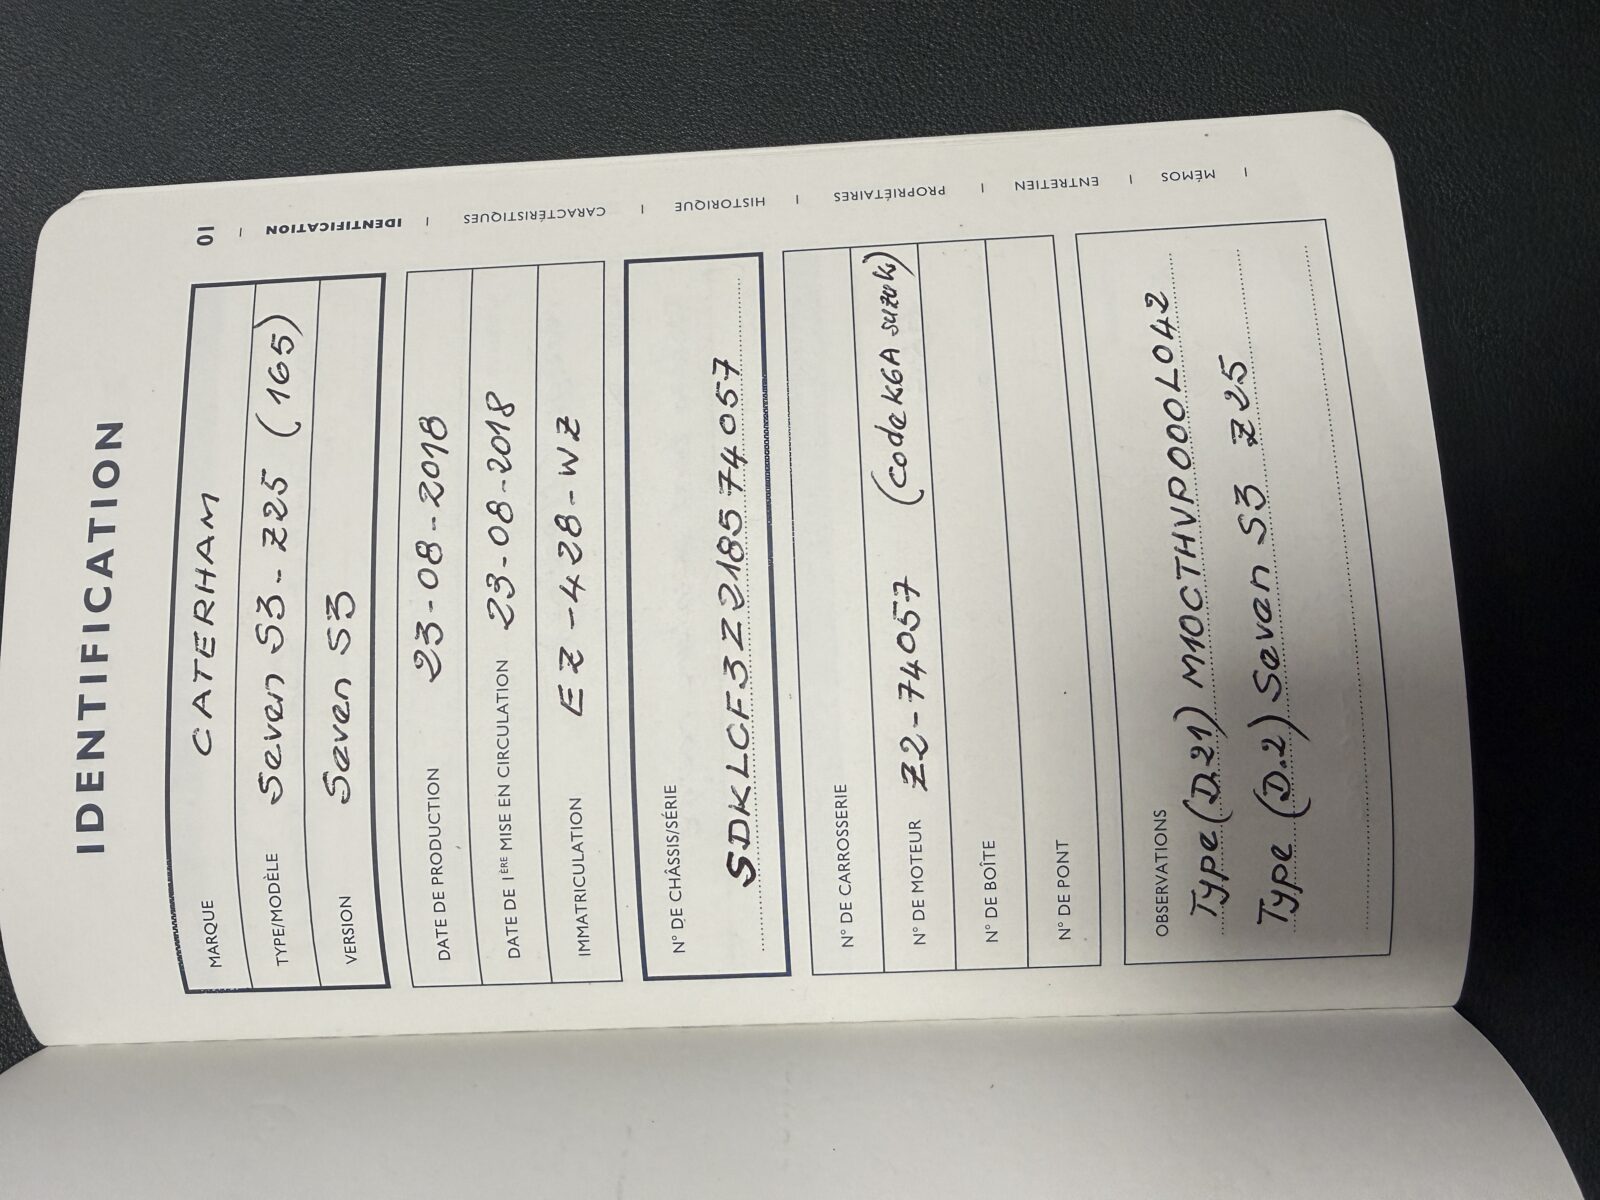 IDENTIFICATION
01 | IDENTIFICATION | CARACTÉRISTIQUES | HISTORIQUE | PROPRIÉTAIRES | ENTRETIEN | MÉMOS |
MARQUE CATERHAM
TYPE/MODÈLE Seven S3 - Z25 (165)
VERSION Seven S3
DATE DE PRODUCTION 23-08-2018
DATE DE 1ÈRE MISE EN CIRCULATION 23-08-2018
IMMATRICULATION EZ-428-WZ
N° DE CHÂSSIS/SÉRIE
SDKLCF3Z218574057
N° DE CARROSSERIE
N° DE MOTEUR Z2-74057 (code K6A suzuki)
N° DE BOÎTE
N° DE PONT
OBSERVATIONS
Type (D.21) M10CTHVP000L042
Type (D.2) Seven S3 Z25